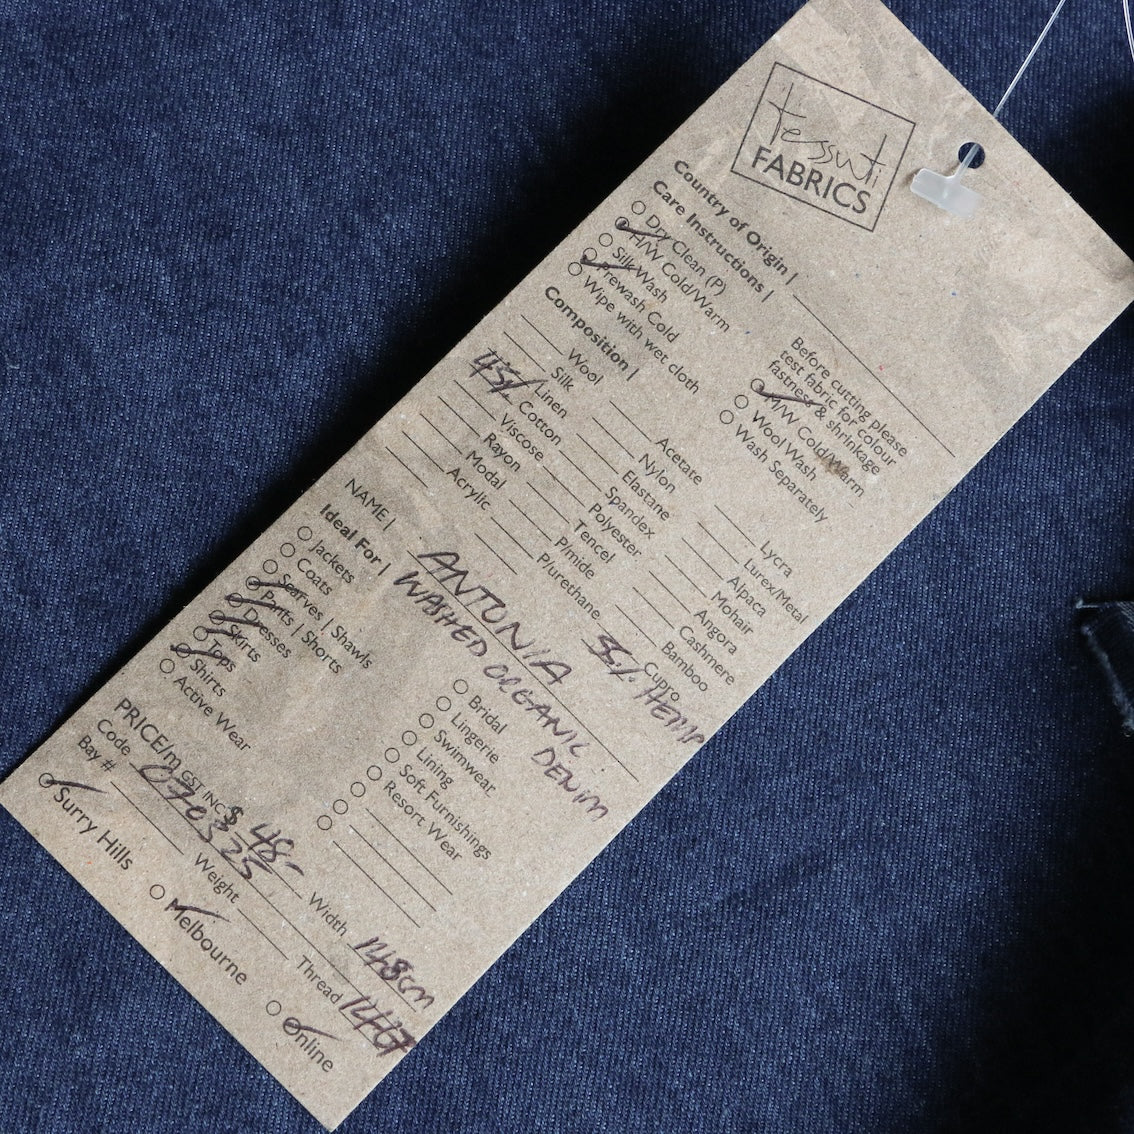 tessuti
FABRICS
Country of Origin |
Care Instructions |
Dry Clean (P)
H/W Cold/Warm
Silk Wash
Prewash Cold
Wipe with wet cloth
Before cutting please
test fabric for colour
fastness & shrinkage
M/W Cold/Warm
Wool Wash
Wash Separately
Composition |
Wool
Silk
Linen
45% Cotton
Viscose
Rayon
Modal
Acrylic
Acetate
Nylon
Elastane
Spandex
Polyester
Tencel
P/mide
P/urethane
Lycra
Lurex/Metal
Alpaca
Mohair
Angora
Cashmere
Bamboo
Cupro
HEMP
NAME |
ANTONIA
WASHED ORGANIC
DENIM
Ideal For |
Jackets
Coats
Scarves | Shawls
Pants | Shorts
Dresses
Skirts
Tops
Shirts
Active Wear
Bridal
Lingerie
Swimwear
Lining
Soft Furnishings
Resort Wear
PRICE/m GST INC $ 48-
Code 070325
Width 148cm
Bay #
Weight
Thread
Surry Hills
Melbourne
Online